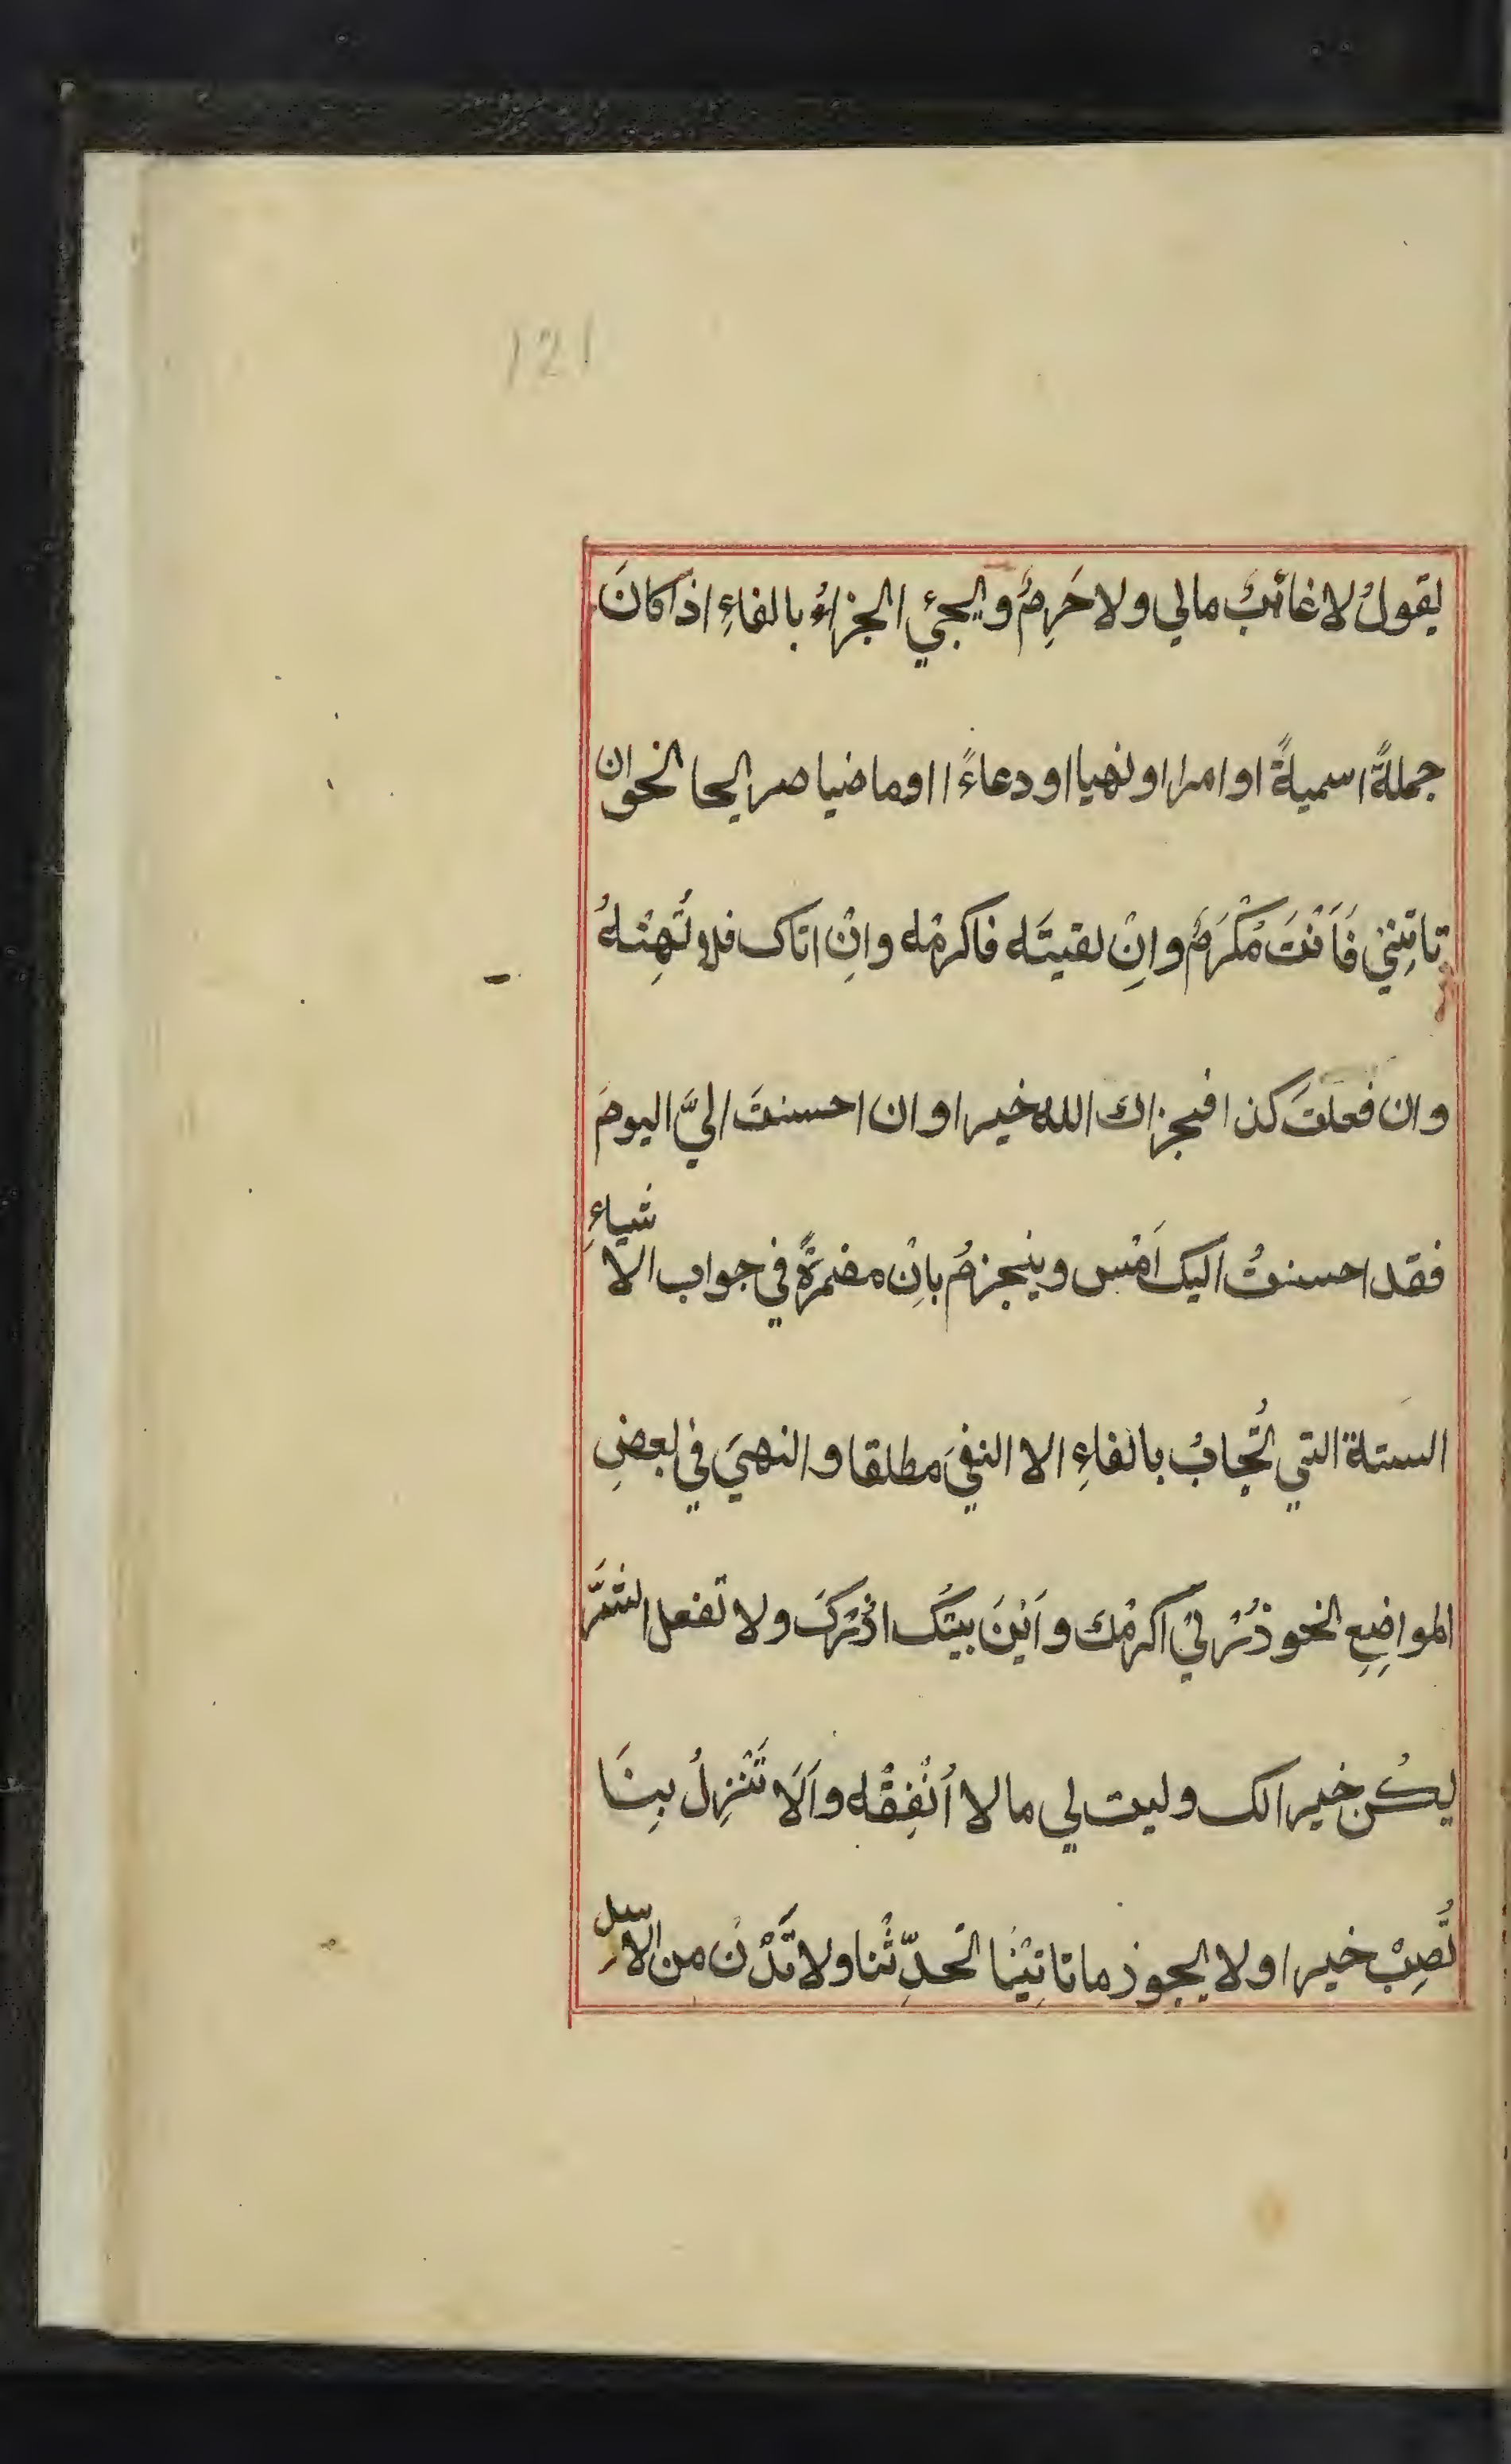 121
يقولُ لا غائبٌ مالي ولا حَرِمٌ ويجيُ الجزاءُ بالفاءِ اذا كانَ
جملةً اسميةً او امرا او نهيا او دعاءً ا اوماضيا صريحا نحو ان
تاتِنِيْ فَاَنْتَ مُكْرَمٌ وانْ لقيتَه فاكرمْه وانْ اتاك فلا تُهِنْهُ
وان فعلتَ كذا فيجزاك الله خيرا و ان احسنتَ اليَّ اليومَ
فقد احسنتُ اليك اَمْسِ وينجزمُ بانْ مضمرةً في جواب الاشياءِ
الستة التي تُجابُ بالفاءِ الا النفيَ مطلقا و النهيَ في بعضِ
المواضِعِ نحو زُرْنِيْ اكرمْك واَيْنَ بيتُك ازُرْكَ ولا تفعل الشَّرَّ
يكُن خيرا لك وليت لي مالا اُنْفِقْه واَلَا تَنْزِلُ بِنَا
تُصِبْ خيرا ولا يجوز ماتاتِيْنَا تحدِّثْنا ولا تَدْنُ من الاسل